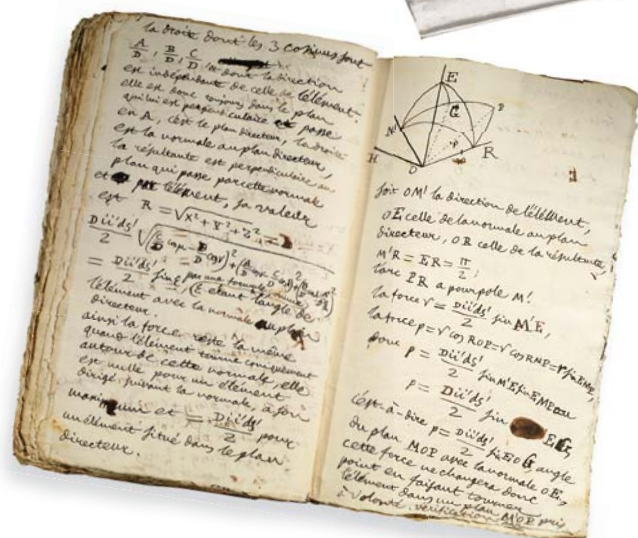 la droite dont les 3 cosinus sont
A/D, B/D, C/D et dont la direction
est indépendante de celle de l'élément
elle est donc toujours dans le plan
qui lui est perpendiculaire et passe
en A, c'est le plan directeur, la droite
est la normale au plan directeur,
la résultante est perpendiculaire au
plan qui passe par cette normale
et par l'élément, sa valeur
est R = √X²+Y²+Z² =
Dii'ds'/2
= Dii'ds'/2 sin ε (ε étant l'angle de
l'élément avec la normale au plan
directeur.
ainsi la force reste la même
quand l'élément tourne coniquement
autour de cette normale, elle
est nulle pour un élément
dirigé suivant la normale, à son
maximum et = Dii'ds'/2 pour
un élément situé dans le plan
directeur.
E
G
P
M'
H
O
R
soit OM' la direction de l'élément,
OE celle de la normale au plan
directeur, OR celle de la résultante,
M'R = ER = π/2,
l'arc PR a pour pole M'.
la force r = Dii'ds'/2 sin M'E,
la force p = r cos ROP = r cos
donc p = Dii'ds'/2 sin M'E sin
p = Dii'ds'/2 sin EG,
c'est-à-dire p = Dii'ds'/2 sin EOG, angle
du plan MOP avec la normale OE,
cette force ne changera donc
point en faisant tourner
l'élément dans un plan M'OP pris
à volonté. vérification